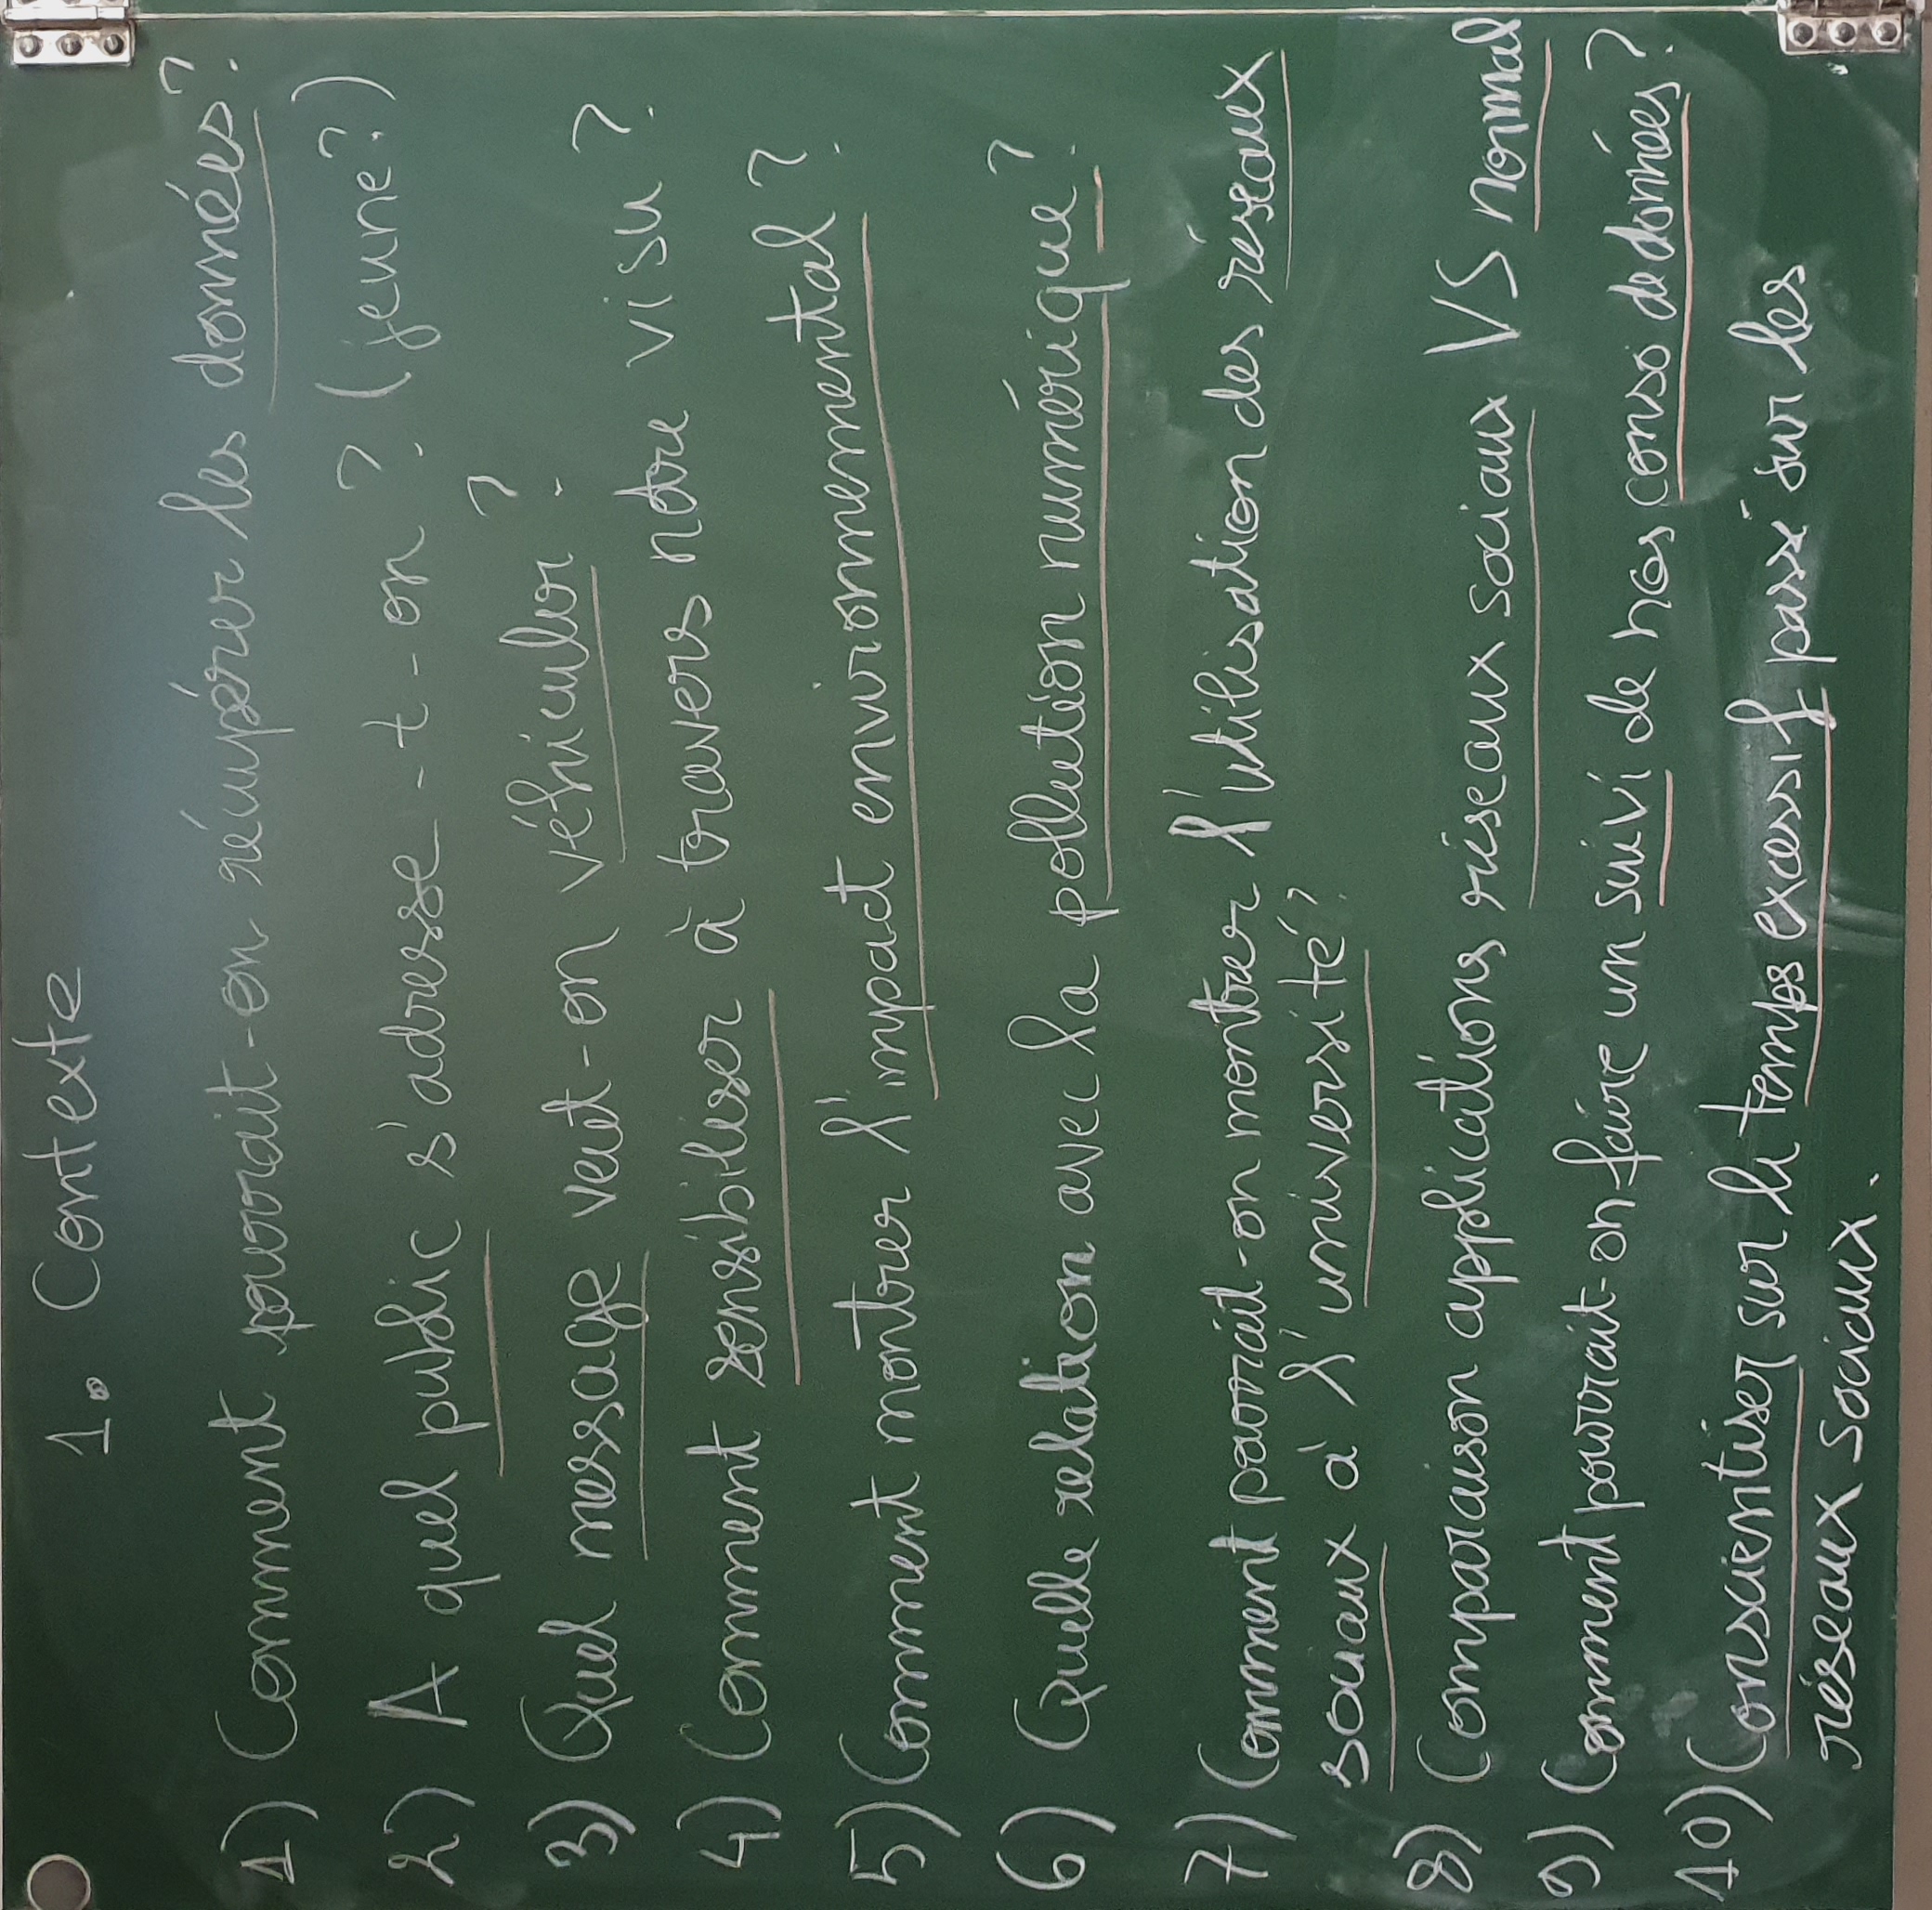 1. Contexte
1) Comment pourrait-on récupérer les données ?
2) A quel public s'adresse-t-on ? (jeune?)
3) Quel message veut-on véhiculer ?
4) Comment sensibiliser à travers notre visu ?
5) Comment montrer l'impact environnemental ?
6) Quelle relation avec la pollution numérique ?
7) Comment pourrait-on montrer l'utilisation des réseaux
sociaux à l'université ?
8) Comparaison applications réseaux sociaux VS normal
9) Comment pourrait-on faire un suivi de nos conso de données ?
10) Conscientiser sur le temps excessif passé sur les
réseaux sociaux.